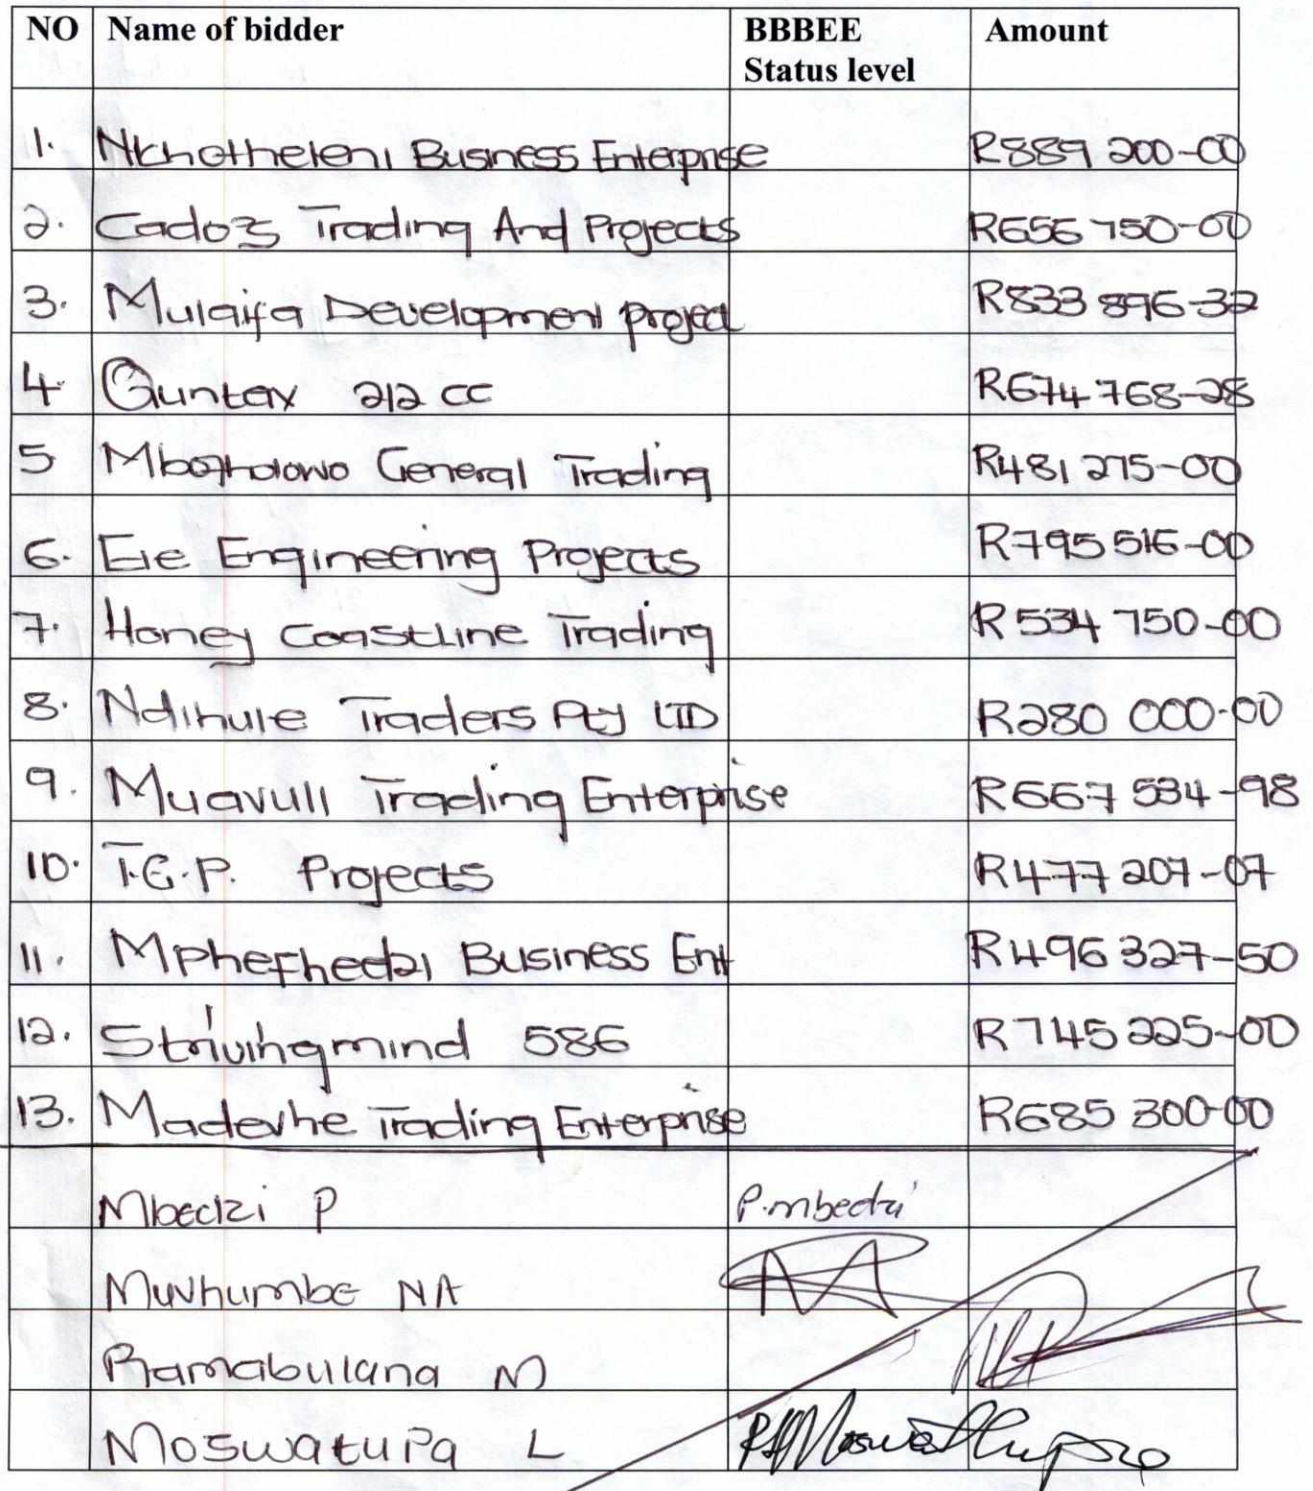 NO Name of bidder BBBEE Status level Amount
11. Nkhotheleni Business Enterprise R889 200-00
2. Cadozs Trading And Projects R656 750-00
3. Mulaifa Development project R833 896-32
4. Quntax 212 CC R674 768-28
5 General Trading R481 275-00
6. Eie Engineering Projects R795 516-00
7. Honey Coastline Trading R534 750-00
8. Ndihule Traders Pty LTD R280 000-00
9. Muavuli Trading Enterprise R667 534-98
10. T.G.P. Projects R477 207-07
11. Mphephedzi Business Ent R496 327-50
12. Strivingmind 586 R745 225-00
13. Madevhe Trading Enterprise R685 300-00
Mbedzi P P.mbedzi
Muvhumbe NA
Ramabulana M
Moswatupa L